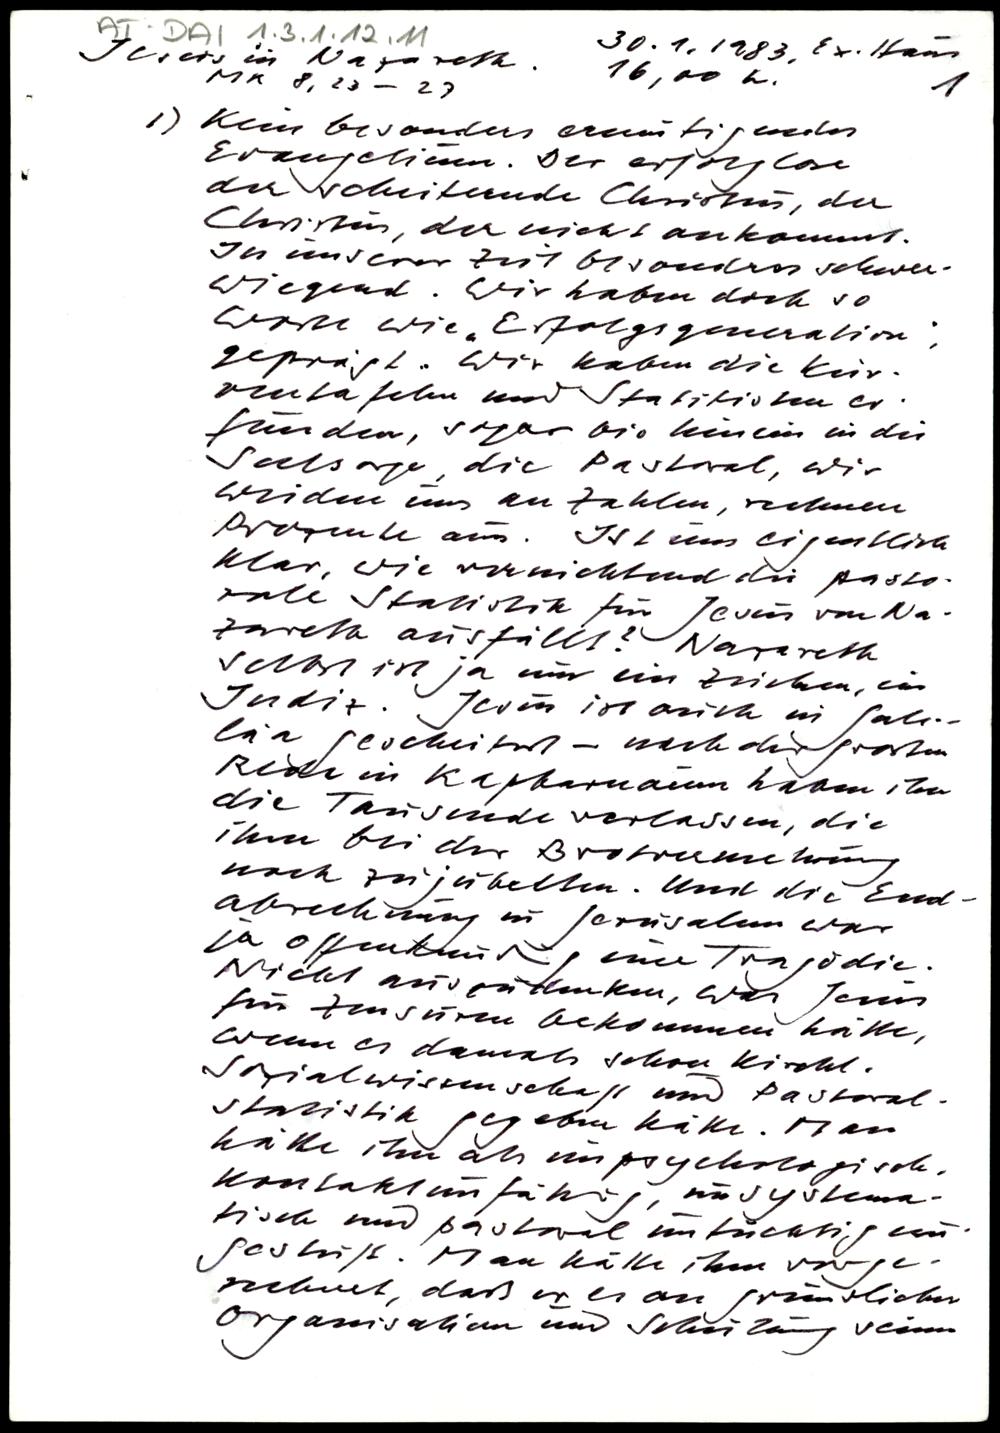 AT-DAI 1.3.1.12.11
Jesus in Nazareth. 30.1.1983, Ex. Haus
MK 8,23-27 16,00 h. 1
1) Kein besonders ermutigendes
Evangelium. Der erfolglose
der scheiternde Christus, der
Christus, der nicht ankommt.
In unserer Zeit besonders schwer-
wiegend. Wir haben doch so
Worte wie „Erfolgsgeneration",
geprägt. Wir haben die Kur-
ventafeln und Statistiken er-
funden, sogar bis hinein in die
Seelsorge, die Pastoral, wir
weiden uns an Zahlen, rechnen
Prozente aus. Ist uns eigentlich
klar, wie vernichtend die pasto-
rale Statistik für Jesus von Na-
zareth ausfällt? Nazareth
selbst ist ja nur ein Zeichen, ein
Indiz. Jesus ist auch in Gali-
läa gescheitert - nach der grossen
Rede in Kapharnaum haben ihn
die Tausende verlassen, die
ihm bei der Brotvermehrung
noch zujubelten. Und die End-
abrechnung in Jerusalem war
ja offenkundig eine Tragödie.
Nicht auszudenken, was Jesus
für Zensuren bekommen hätte,
wenn es damals schon kirchl.
Sozialwissenschaft und Pastoral-
statistik gegeben hätte. Man
hätte ihn als unpsychologisch,
kontaktunfähig, unsystema-
tisch und pastoral untüchtig ein-
gestuft. Man hätte ihm vorge-
rechnet, daß er es an gründlicher
Organisation und Schulung seiner